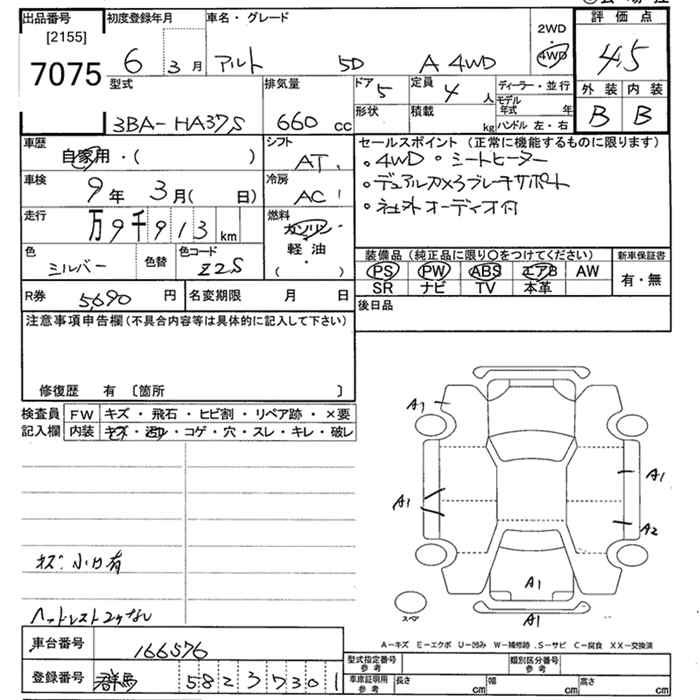 出品番号
[2155]
7075
初度登録年月
6 3月
車名・グレード
アルト 5D A 4WD
2WD
・
4WD
評価点
4.5
外装 内装
B B
型式
3BA-HA37S
排気量
660 cc
ドア 5
形状
定員 4 人
積載 kg
ディーラー・並行
モデル年式 年
ハンドル 左・右
車歴
自家用・( )
シフト
AT
セールスポイント (正常に機能するものに限ります)
。4WD 。シートヒーター
。デュアルカメラブレーキサポート
。社外オーディオ付
車検
9年 3月( 日)
冷房
AC
走行
万9千913 km
燃料
ガソリン
軽油
( )
色
シルバー
色替
色コード
Z2S
装備品 (純正品に限り○をつけてください)
新車保証書
PS PW ABS エアB AW
SR ナビ TV 本革
有・無
R券 5,690 円
名変期限 月 日
後日品
注意事項申告欄(不具合内容等は具体的に記入して下さい)
修復歴 有 〔箇所 〕
検査員
記入欄
FW キズ・飛石・ヒビ割・リペア跡・×要
内装 キズ・汚れ・コゲ・穴・スレ・キレ・破レ
キズ小凹有
ヘッドレスト2ケなし
A1
A1
A1
A2
A1
A1
スペア
A-キズ E-エクボ U-凹み W-補修跡 .S-サビ C-腐食 XX-交換済
車台番号 166576
登録番号 群馬 582 3 7301
型式指定番号
参考
類別区分番号
参考
車庫証明用
参考
長さ cm 幅 cm 高さ cm